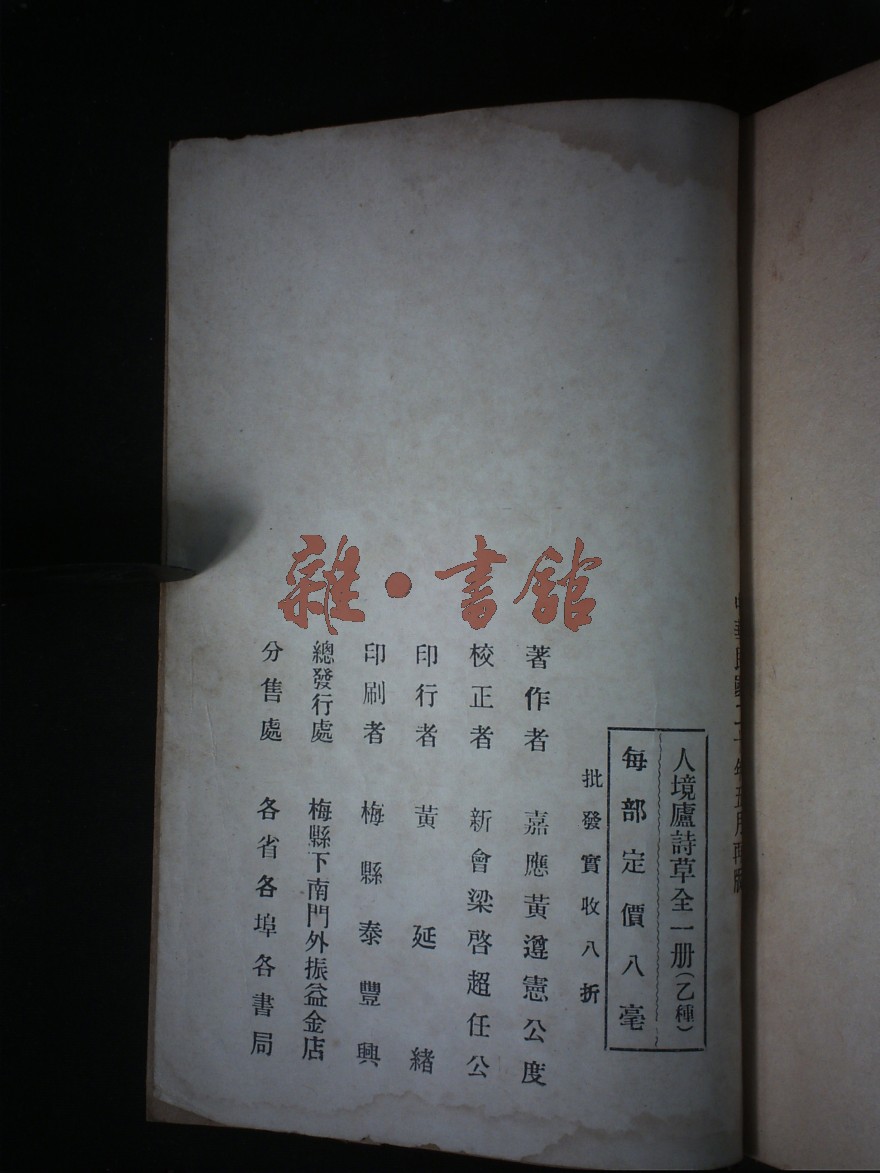 中華民國二十年五月再版
人境廬詩草全一册（乙種）
每部定價八毫
批發實收八折
著作者 嘉應黃遵憲公度
校正者 新會梁啓超任公
印行者 黃延緒
印刷者 梅縣泰豐興
總發行處 梅縣下南門外振益金店
分售處 各省各埠各書局
雜·書館